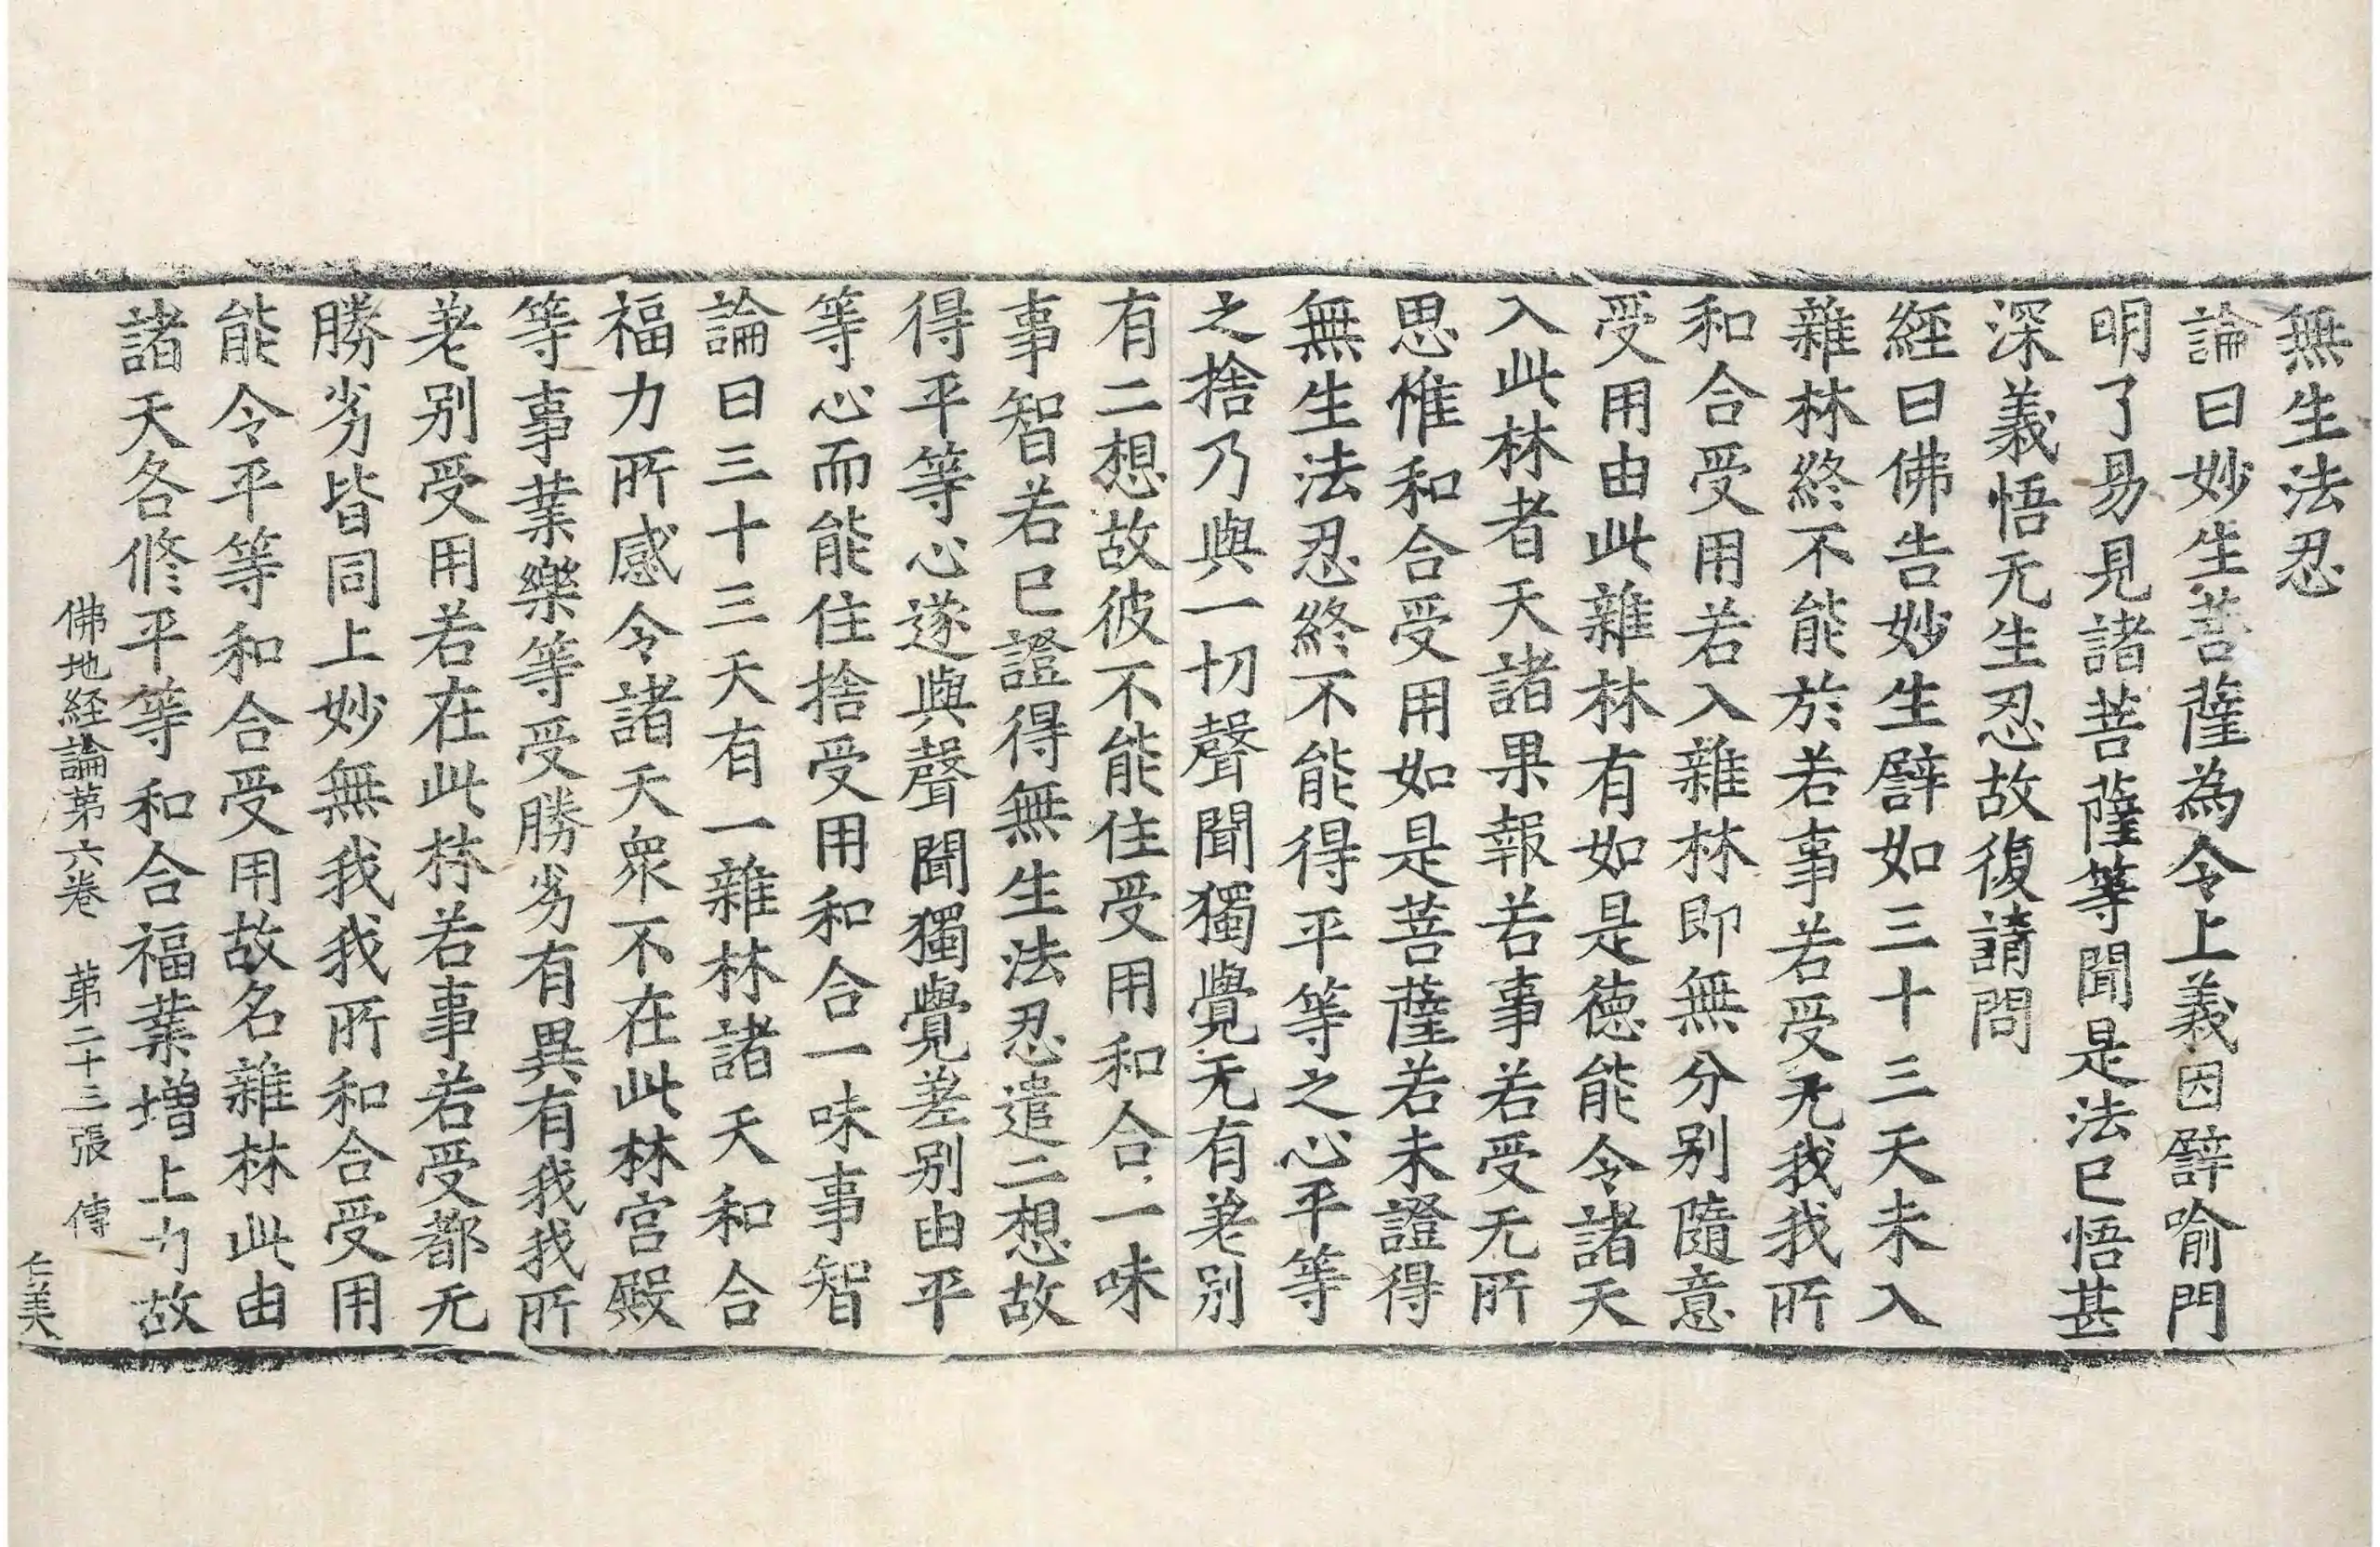 無生法忍
論曰妙生菩薩為令上義因譬喻門
明了易見諸菩薩等聞是法已悟甚
深義悟无生忍故復請問
經曰佛告妙生譬如三十三天未入
雜林終不能於若事若受无我我所
和合受用若入雜林即無分别隨意
受用由此雜林有如是德能令諸天
入此林者天諸果報若事若受无所
思惟和合受用如是菩薩若未證得
無生法忍終不能得平等之心平等
之捨乃與一切聲聞獨覺无有差别
有二想故彼不能住受用和合一味
事智若已證得無生法忍遣二想故
得平等心遂與聲聞獨覺差别由平
等心而能住捨受用和合一味事智
論曰三十三天有一雜林諸天和合
福力所感令諸天眾不在此林宮殿
等事業樂等受勝劣有異有我我所
差别受用若在此林若事若受都无
勝劣皆同上妙無我我所和合受用
能令平等和合受用故名雜林此由
諸天各修平等和合福業增上力故
佛地経論第六卷 第二十三張 傳
仁美